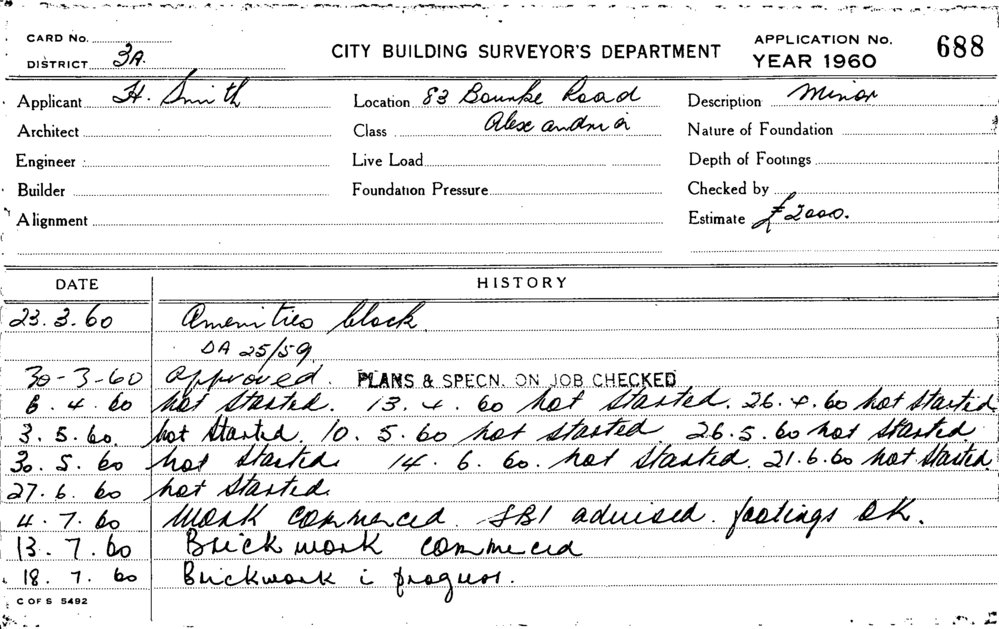 CARD No.
DISTRICT 3A.
CITY BUILDING SURVEYOR'S DEPARTMENT
APPLICATION No. 688
YEAR 1960
Applicant H. Smith
Location 83 Bourke Road
Description Minor
Architect
Class Alexandria
Nature of Foundation
Engineer
Live Load
Depth of Footings
Builder
Foundation Pressure
Checked by
Alignment
Estimate £2000.
DATE HISTORY
23.3.60 Amenities block.
DA 25/59
30-3-60 approved. PLANS & SPECN. ON JOB CHECKED
6.4.60 not started. 13.4.60 not started. 26.4.60 not started.
3.5.60. not started. 10.5.60 not started. 26.5.60 not started
30.5.60 not started. 14.6.60. not started. 21.6.60 not started
27.6.60 not started.
4.7.60 Work commenced. SBI advised. footings OK.
13.7.60 Brick work commeced
18.7.60 Brickwork i progress.
C OF S 5492